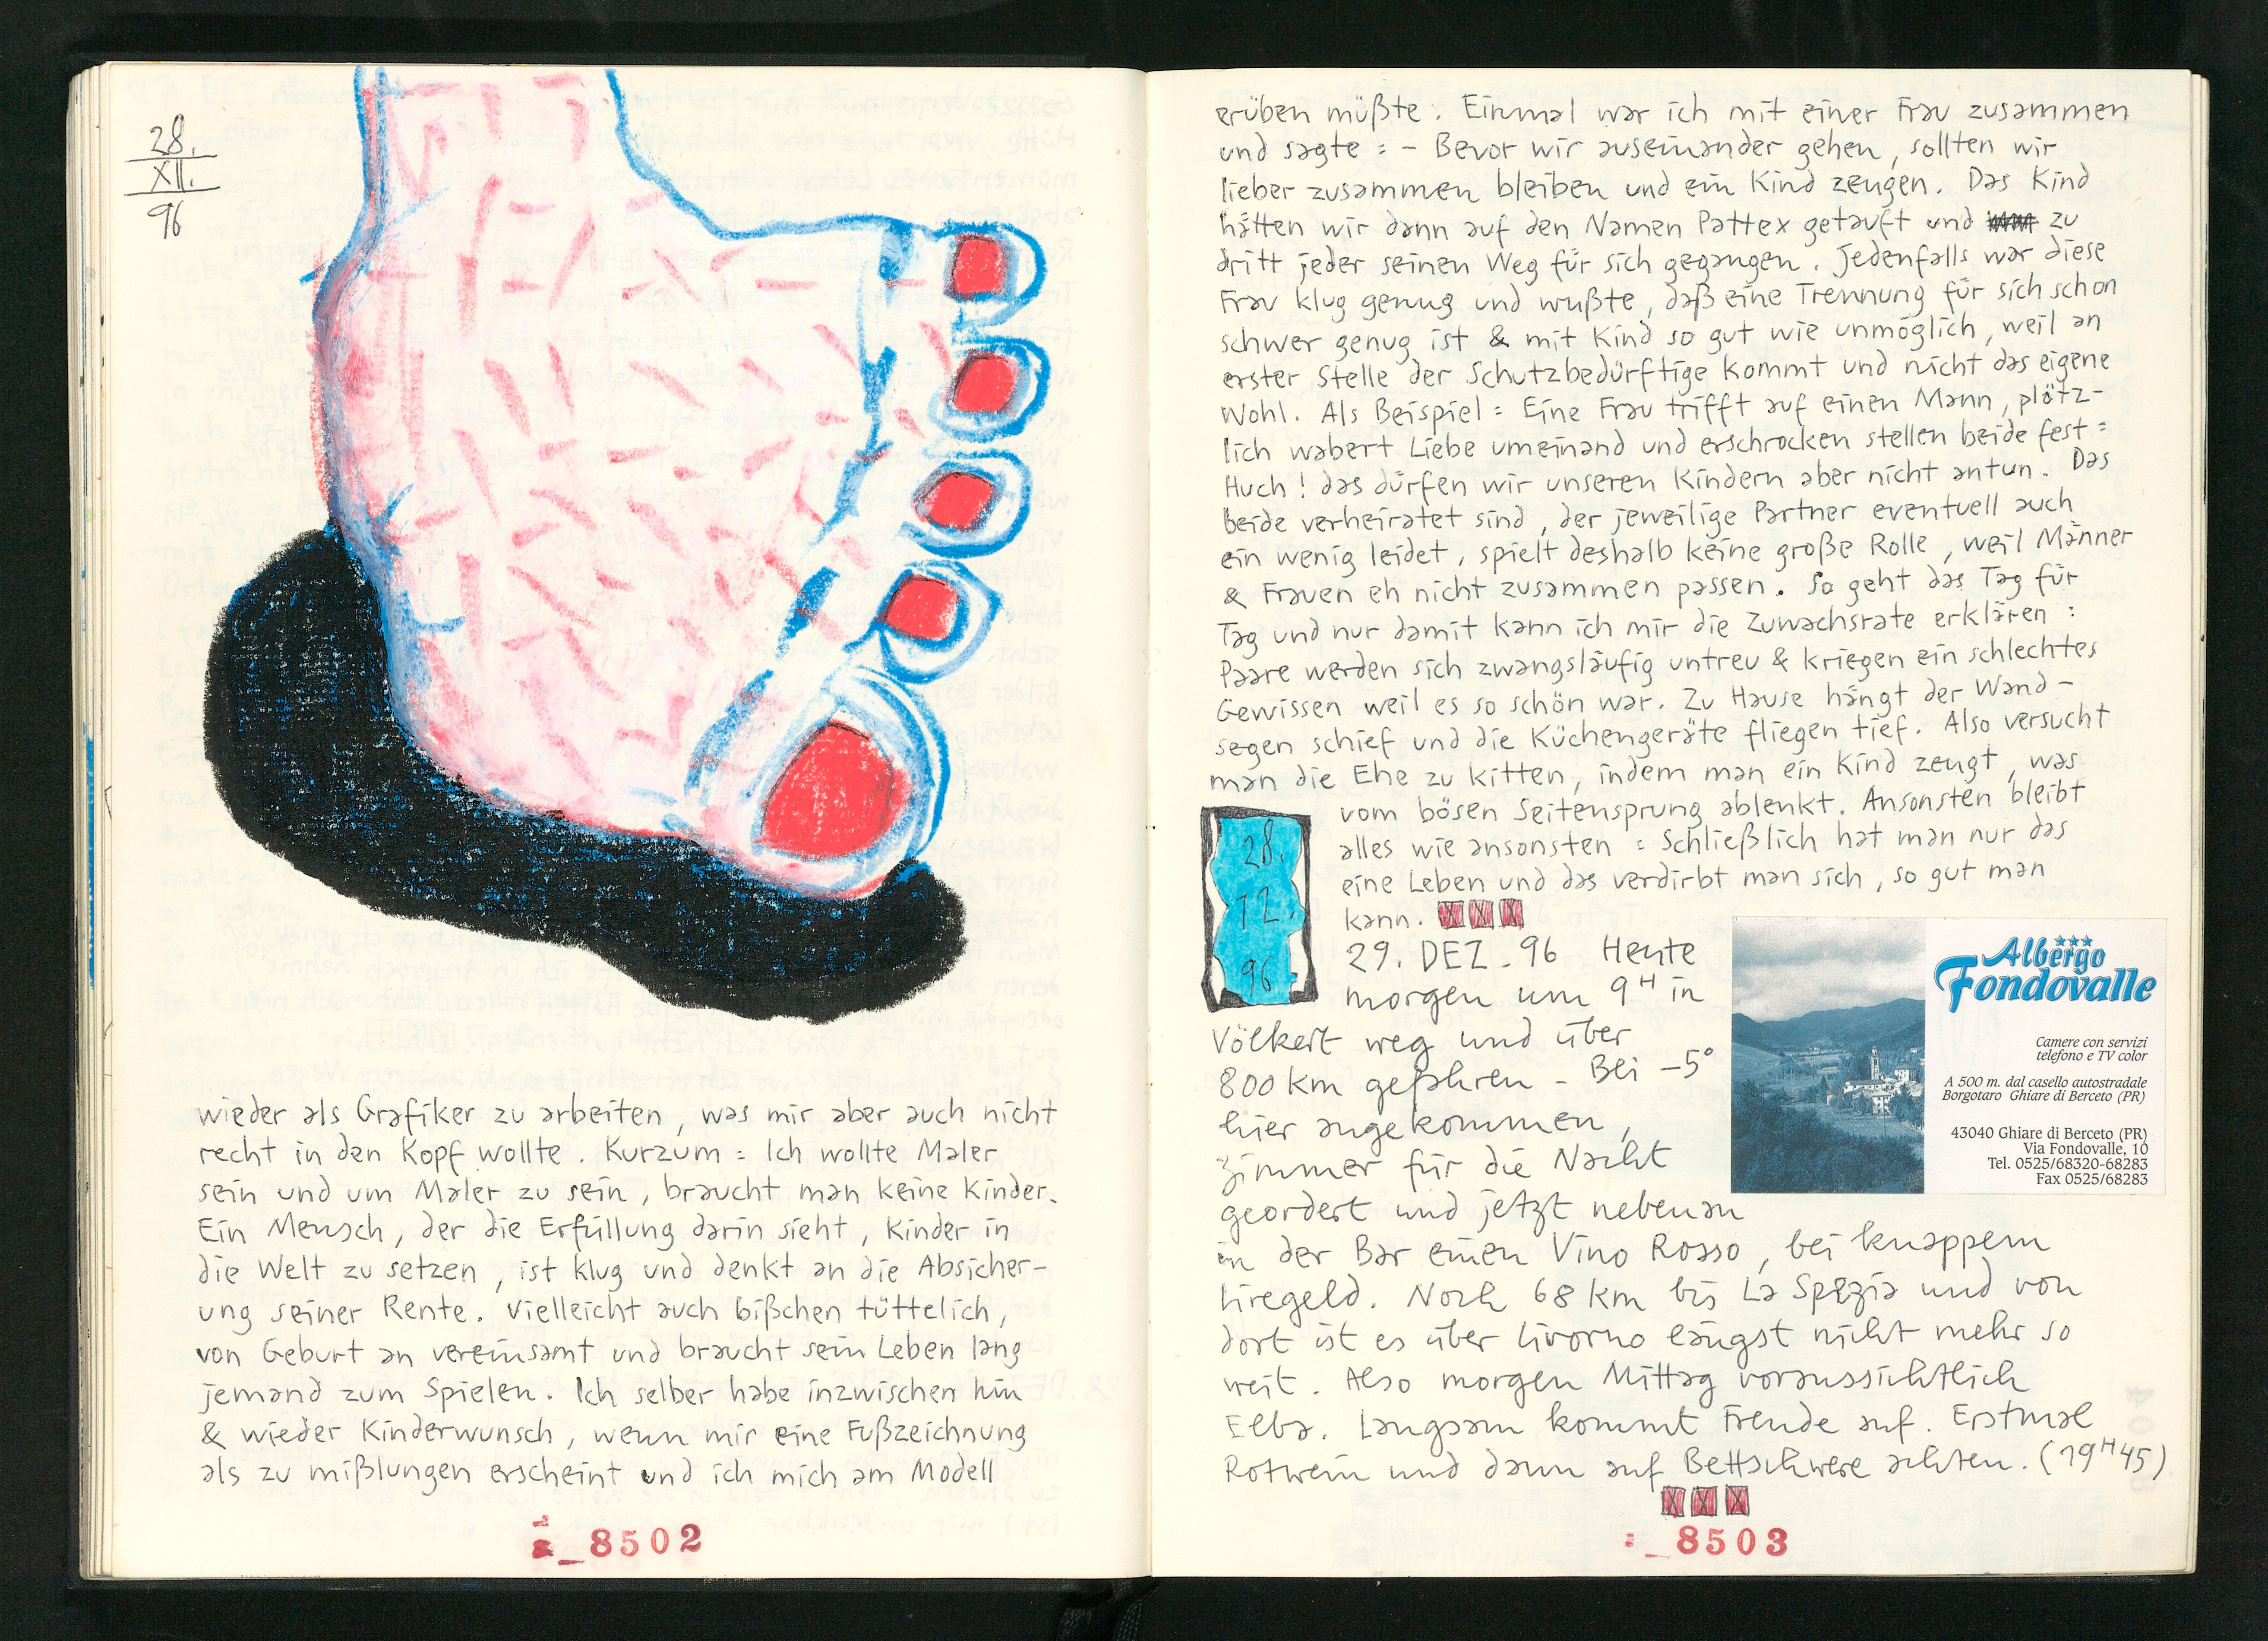 28.
XII.
96
wieder als Grafiker zu arbeiten, was mir aber auch nicht
recht in den Kopf wollte. Kurzum = Ich wollte Maler
sein und um Maler zu sein, braucht man keine Kinder.
Ein Mensch, der die Erfüllung darin sieht, Kinder in
die Welt zu setzen, ist klug und denkt an die Absicher-
ung seiner Rente. Vielleicht auch bißchen tüttelich,
von Geburt an vereinsamt und braucht sein Leben lang
jemand zum Spielen. Ich selber habe inzwischen hin
& wieder Kinderwunsch, wenn mir eine Fußzeichnung
als zu mißlungen erscheint und ich mich am Modell
_8502
erüben müßte. Einmal war ich mit einer Frau zusammen
und sagte = - Bevor wir auseinander gehen, sollten wir
lieber zusammen bleiben und ein Kind zeugen. Das Kind
hätten wir dann auf den Namen Pattex getauft und zu
dritt jeder seinen Weg für sich gegangen. Jedenfalls war diese
Frau klug genug und wußte, daß eine Trennung für sich schon
schwer genug ist & mit Kind so gut wie unmöglich, weil an
erster Stelle der Schutzbedürftige kommt und nicht das eigene
Wohl. Als Beispiel = Eine Frau trifft auf einen Mann, plötz-
lich wabert Liebe umeinand und erschrocken stellen beide fest =
Huch! das dürfen wir unseren Kindern aber nicht antun. Das
beide verheiratet sind, der jeweilige Partner eventuell auch
ein wenig leidet, spielt deshalb keine große Rolle, weil Männer
& Frauen eh nicht zusammen passen. So geht das Tag für
Tag und nur damit kann ich mir die Zuwachsrate erklären :
Paare werden sich zwangsläufig untreu & kriegen ein schlechtes
Gewissen weil es so schön war. Zu Hause hängt der Wand-
segen schief und die Küchengeräte fliegen tief. Also versucht
man die Ehe zu kitten, indem man ein Kind zeugt, was
vom bösen Seitensprung ablenkt. Ansonsten bleibt
alles wie ansonsten = Schließlich hat man nur das
eine Leben und das verdirbt man sich, so gut man
kann.
28.
12.
96.
29. DEZ. 96 Heute
morgen um 9H in
Völkert weg und über
800 km gefahren - Bei -5°
hier angekommen,
Zimmer für die Nacht
geordert und jetzt nebenan
in der Bar einen Vino Rosso, bei knappem
Liregeld. Noch 68 km bis La Spezia und von
dort ist es über Livorno längst nicht mehr so
weit. Also morgen Mittag voraussichtlich
Elba. Langsam kommt Freude auf. Erstmal
Rotwein und dann auf Bettschwere achten. (19H45)
Albergo
Fondovalle
Camere con servizi
telefono e TV color
A 500 m. dal casello autostradale
Borgotaro Ghiare di Berceto (PR)
43040 Ghiare di Berceto (PR)
Via Fondovalle, 10
Tel. 0525/68320-68283
Fax 0525/68283
_8503